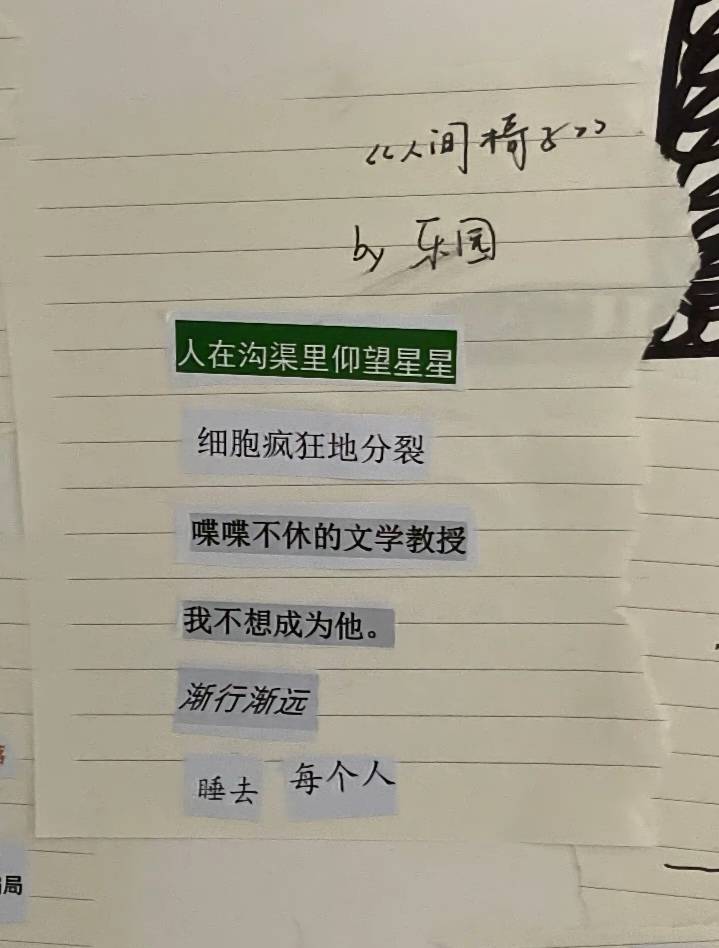 《人间椅子》
by 乐园
人在沟渠里仰望星星
细胞疯狂地分裂
喋喋不休的文学教授
我不想成为他。
渐行渐远
睡去 每个人
局